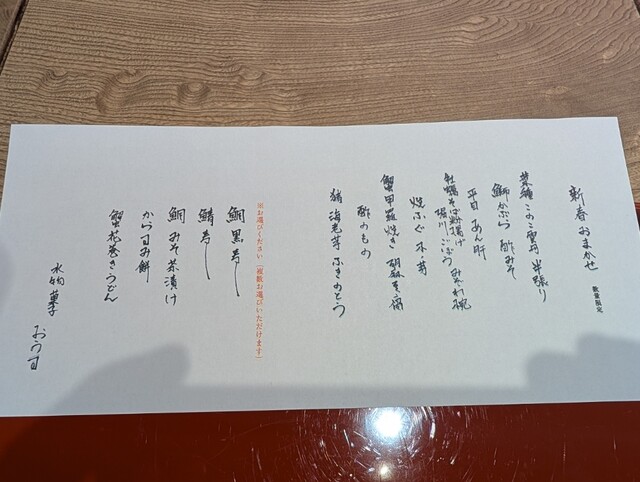 新春おまかせ 数量限定
菜種 このこ 雲丹 半張り
鰤かぶら 酢みそ
平目 あん肝
牡蠣そば粉揚げ
堀川ごぼう みぞれ椀
焼ふぐ 木の芽
蟹甲羅焼き
酢のもの
猪 海老芋 ふきのとう
※お選びください「複数お選びいただけます」
鯛黒寿し
鯖寿し
鯛みそ茶漬け
からすみ餅
蟹花巻きうどん
水物 菓子 おうす